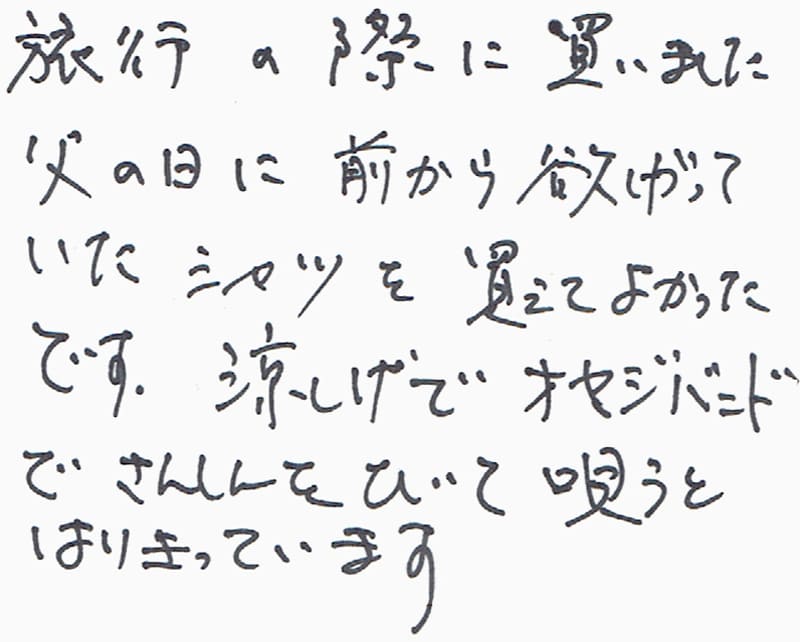 旅行の際に買いました
父の日に前から欲しがって
いたシャツを買えてよかった
です。涼しげでオヤジバンド
でさんしんをひいて唄うと
はりきっています